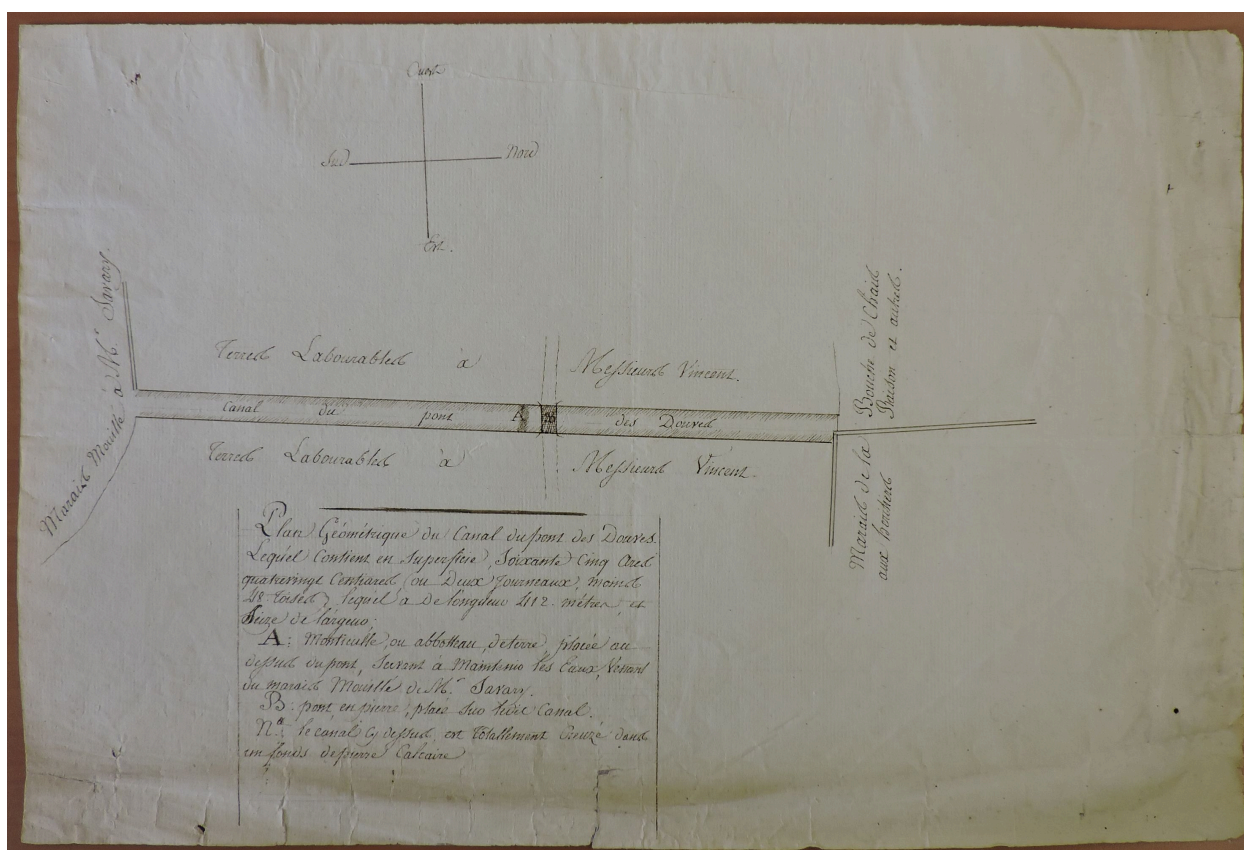 Ouest
Sud
Nord
Est.
Marais Mouillé à M.r Savary.
Terres Labourables à Messieurs Vincent.
Canal du pont A B des Douves
Terres Labourables à Messieurs Vincent.
Marais de la Bouche de Chaid
aux bochers Paison et autres.
Plan Géométrique du Canal du pont des Douves.
Lequel Contient en Superficie, Soixante Cinq Ares
quatrevingt Centiares (ou Deux Journeaux, moins
48 toises), lequel a de longueur 412 mètres, et
Seize de largeur;
A: ou abbotteau, de terre, placée au
dessus du pont, Servant à Maintenir les Eaux, Venant
du marais Mouillé de M.r Savary.
B: pont en pierre, placé sur ledit Canal.
N.a le canal cy dessus est totallement Creuzé dans
un fonds de pierre Calcaire